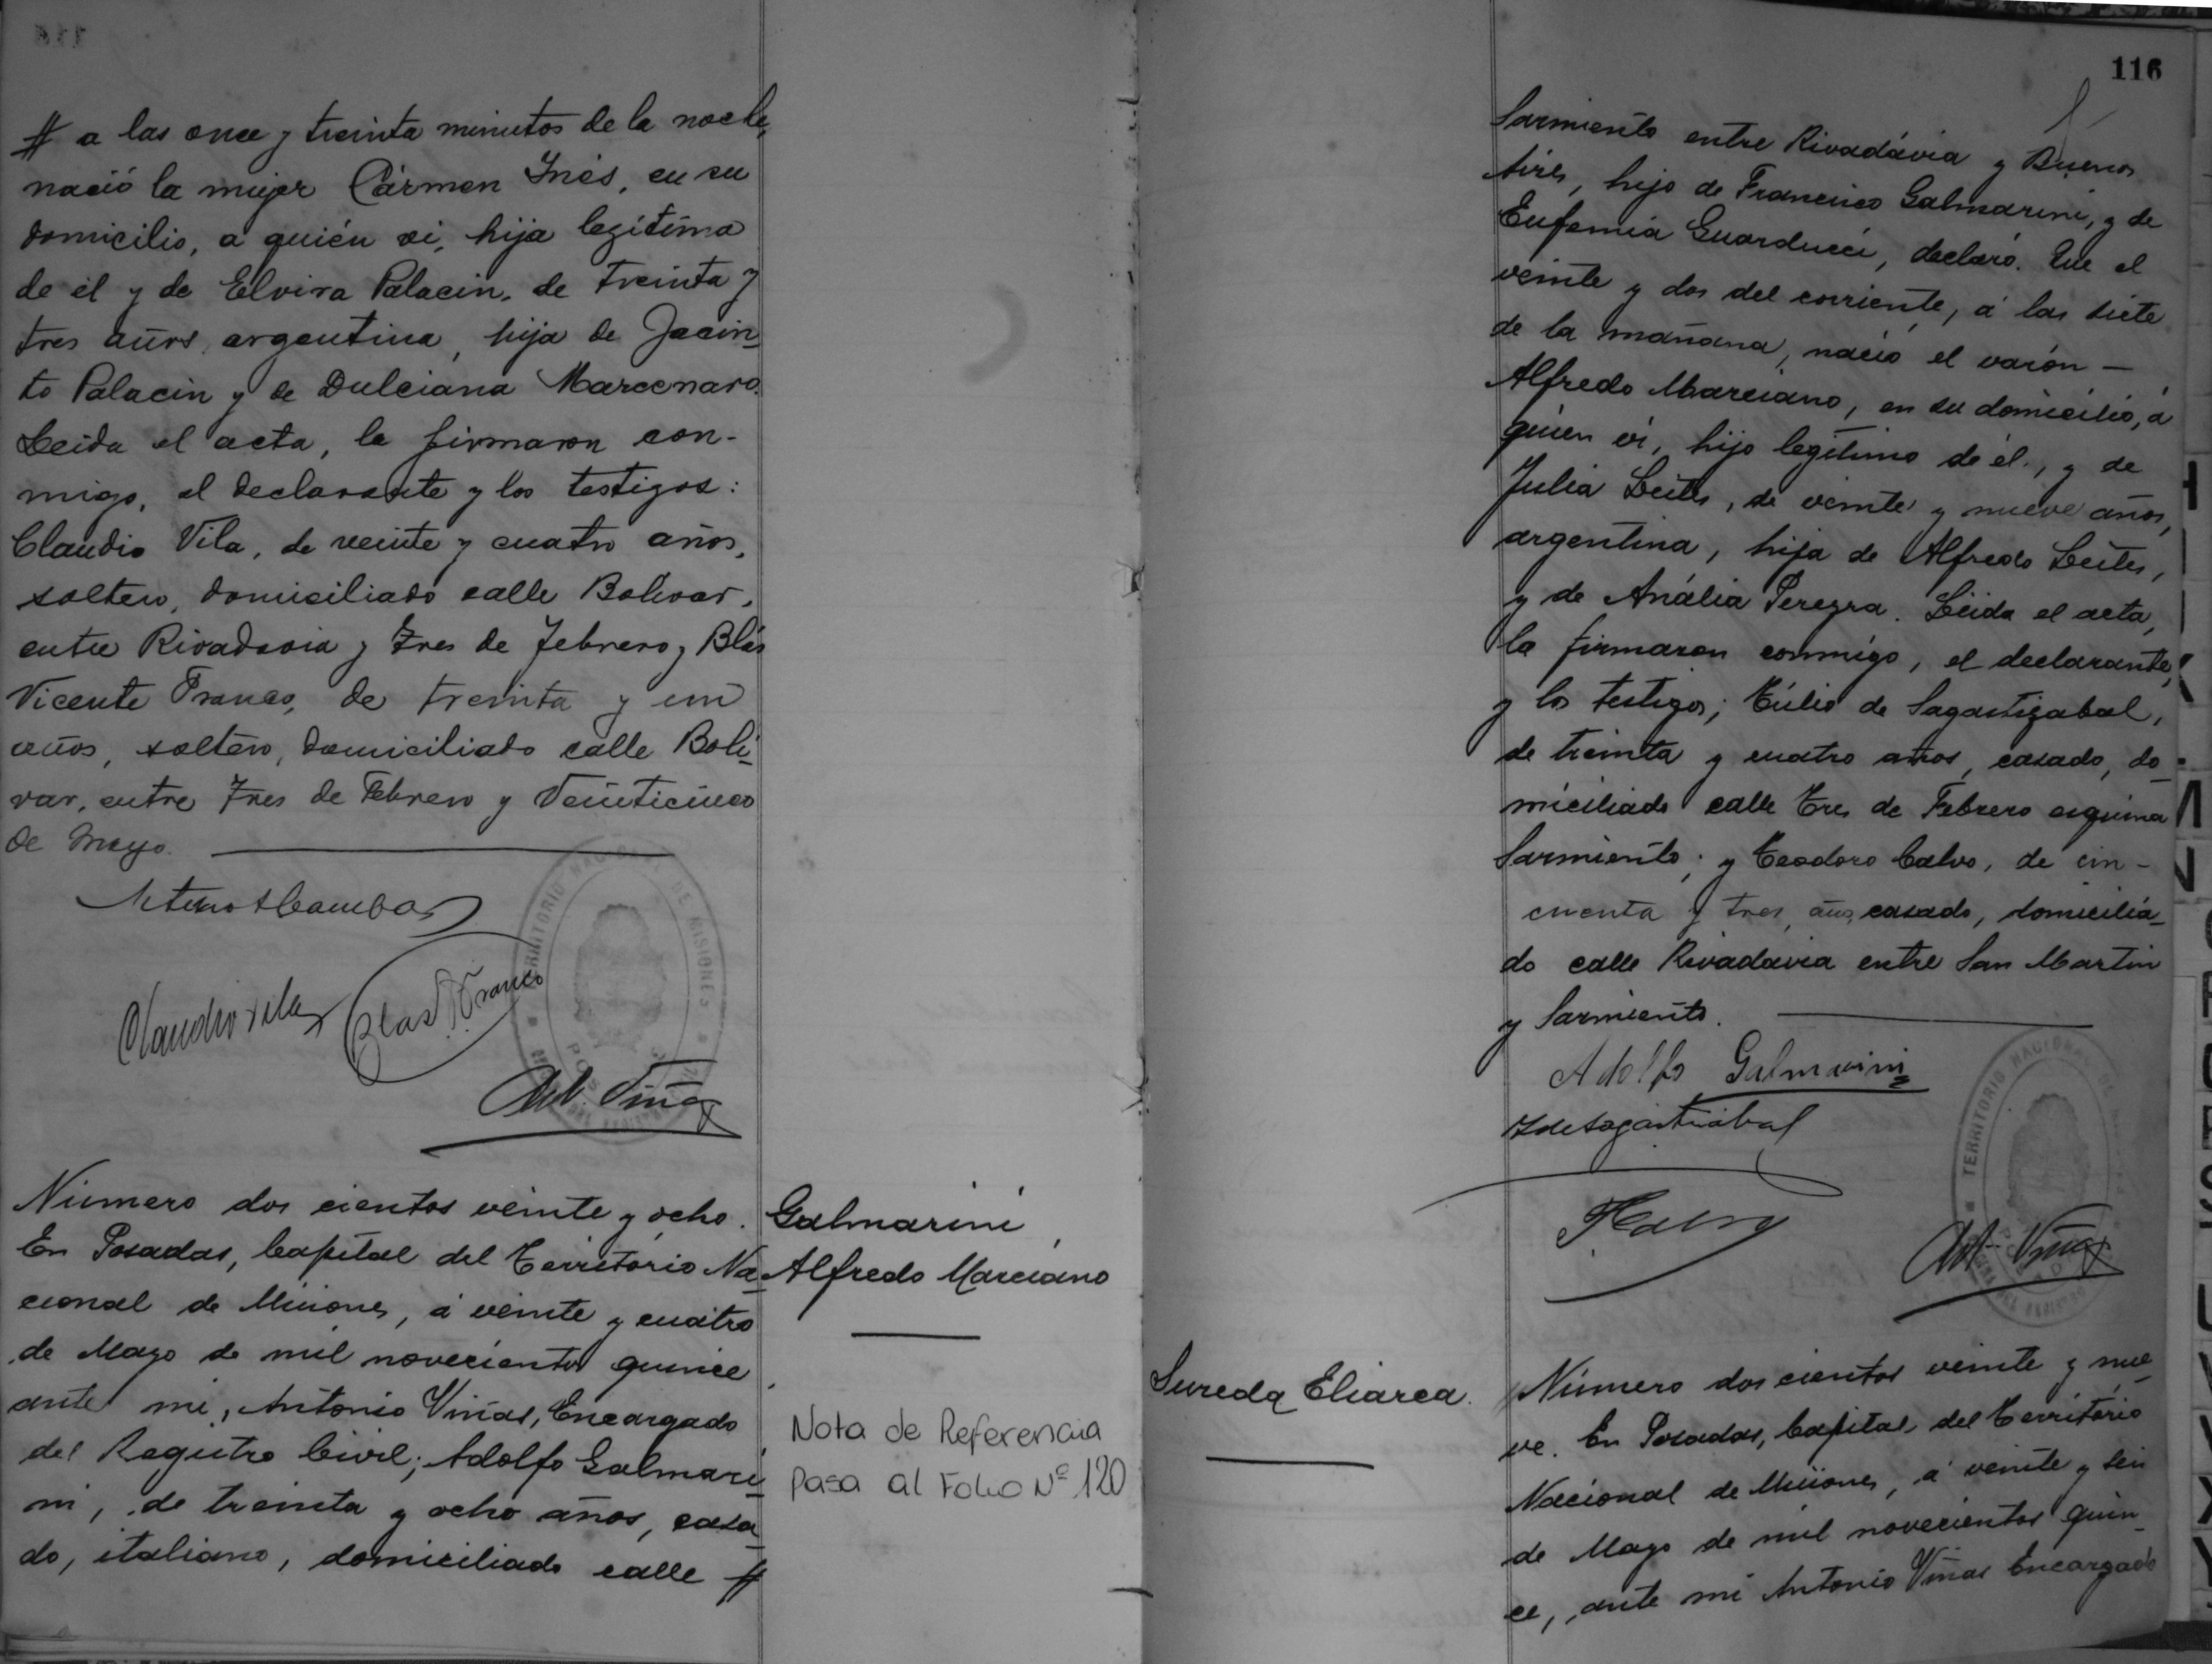 # a las once y treinta minutos de la noche,
nació la mujer Cármen Inés, en su
domicilio, a quién vi, hija legítima
de él y de Elvira Palacin, de treinta y
tres años, argentina, hija de Jacin-
to Palacin y de Dulciana Marcenaro.
Leida el acta, la firmaron con-
migo, el declarante y los testigos:
Claudio Vila, de veinte y cuatro años,
soltero, domiciliado calle Bolivar,
entre Rivadavia y Tres de Febrero y Blás
Vicente Franco, de treinta y un
años, soltero, domiciliado calle Boli-
var, entre Tres de Febrero y Veinticinco
de Mayo.
Claudio Vila
Blas V. Franco
Ant. Viñas
TERRITORIO NACIONAL DE MISIONES
Número dos cientos veinte y ocho.
En Posadas, Capital del Territorio Na-
cional de Misiones, á veinte y cuatro
de Mayo de mil novecientos quince
ante mi, Antonio Viñas, Encargado
del Registro Civil; Adolfo Galmari-
ni, de treinta y ocho años, casa-
do, italiano, domiciliado calle #
Galmarini,
Alfredo Marciano
Nota de Referencia
pasa al Folio Nº 120
116
Sarmiento entre Rivadávia y Buenos
Aires, hijo de Francisco Galmarini, y de
Eufemia Guarducci, declaró: Que el
veinte y dos del corriente, á las siete
de la mañana, nació el varón —
Alfredo Marciano, en su domicilio, á
quien ví, hijo legítimo de él, y de
Julia Leites, de veinte y nueve años,
argentina, hija de Alfredo Leites,
y de Anália Pereyra. Leida el acta,
la firmaron conmigo, el declarante,
y los testigos; Túlio de Sagastizabal,
de treinta y cuatro años, casado, do-
miciliado calle Tres de Febrero esquina
Sarmiento; y Teodoro Calvo, de cin-
cuenta y tres años, casado, domicilia-
do calle Rivadavia entre San Martin
y Sarmiento.
Adolfo Galmarini
T de Sagastizabal
Ant. Viñas
TERRITORIO NACIONAL
Sureda Eliarca.
Número dos cientos veinte y nue-
ve. En Posadas, Capital del Territorio
Nacional de Misiones, á veinte y seis
de Mayo de mil novecientos quin-
ce, ante mi Antonio Viñas Encargado